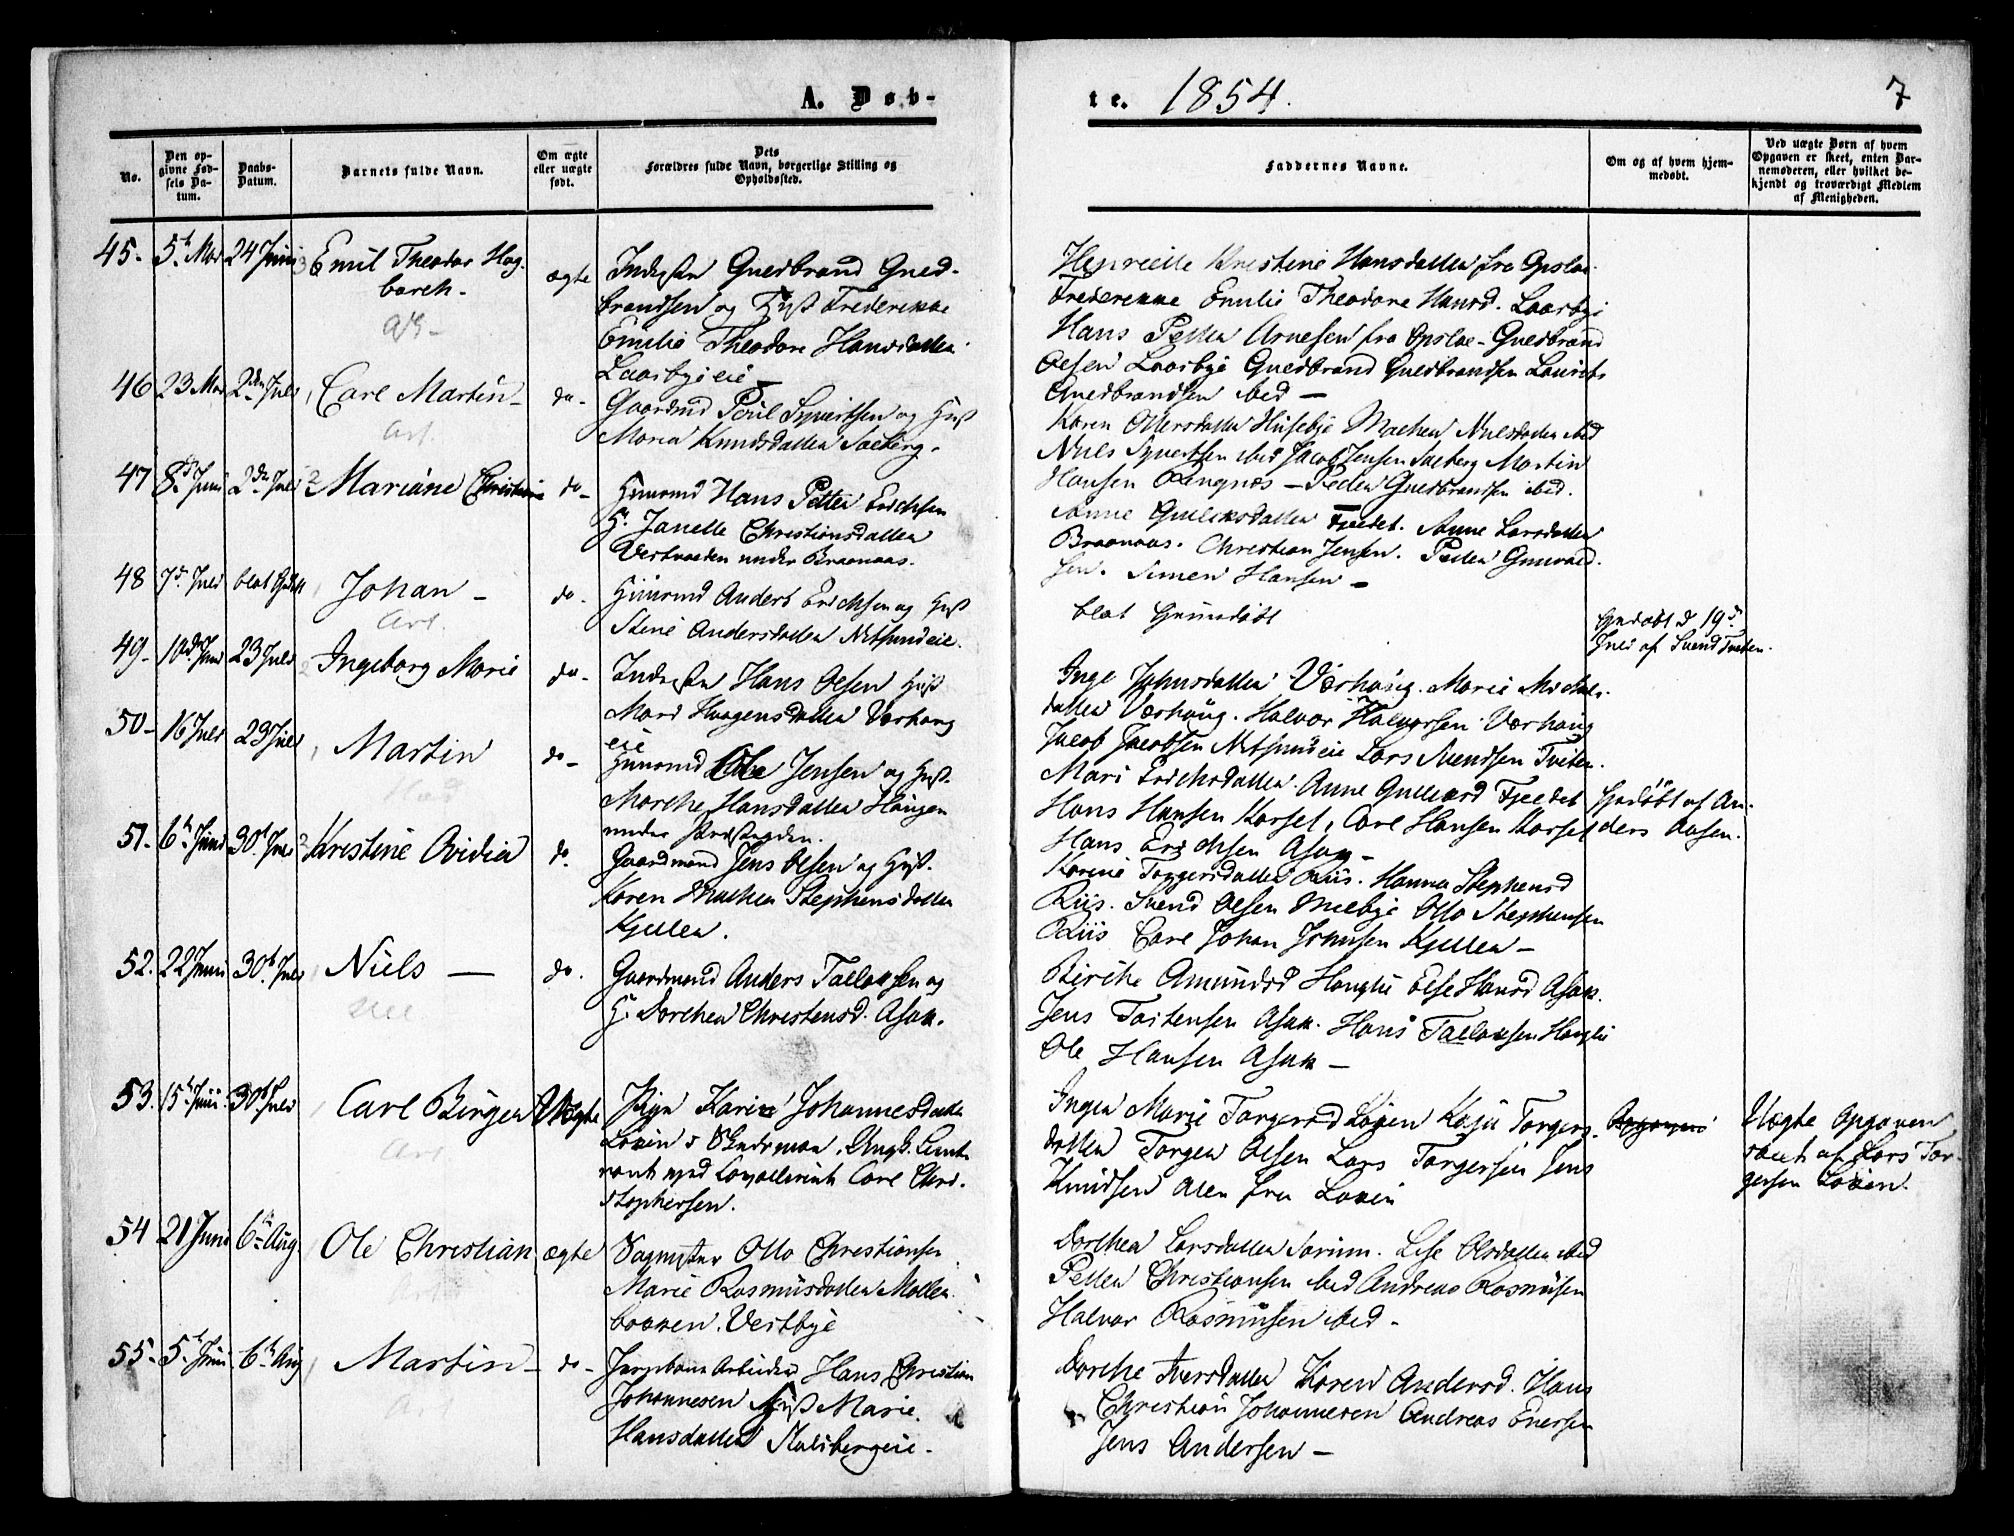 A. Døb-
te. 1854. 7
No.
Den op-
givne Fød-
sels Da-
tum.
Daabs-
Datum.
Barnets fulde Navn.
Om ægte
eller uægte
født.
Dets
Forældres fulde Navn, borgerlige Stilling og
Opholdssted.
Faddernes Navne.
Om og af hvem hjem-
medøbt.
Ved uægte Børn af hvem
Opgaven er skeet, enten Bar-
nemoderen, eller hvilket be-
kjendt og troværdigt Medlem
af Menigheden.
45- 5 Mai 24 Juni Emil Theodor Hag-
barth- ægte
Gudbrand Gud-
brandsen og Hust Frederikke
Emilie Theodora Hansdatter
Laasbyeie
Henriette Kristine Hansdatter fra Opsloe
Frederikke Emilie Theodore Hansd. Laasbye
Hans Petter Arnesen fra Opsloe - Gudbrand
Olsen Laasbye Gudbrand Gudbrandsen Laurits
Gudbrandsen ibid -
46 23 Mai 2den Juli Carl Martin - do-
Gaardmd Poul Syvertsen og Hust
Maria Knudsdatter Soeberg.
Karen Ottersdatter Husebye Mathea Nielsdatter ibid
Niels Syvertsen ibid Jacob Jensen Soeberg Martin
Hansen Ringnæs - Peder Gudbrandsen ibid.
47 8de Juni 2den Juli Mariane Christine do-
Huusmd Hans Petter Erichsen
H. Janette Christiansdatter
under Braanaas.
Anne Gulliksdatter Fjeldet. Anne Larsdatter
Braanaas. Christian Jensen. Petter Gunvald-
sen. Simen Hansen -
48 7de Juli blot Johan - do-
Huusmd Anders Erichsen og Hust
Stine Andersdatter Nitsundeie.
blot Hjemdøbt
Hjdøbt d 19de
Juli af Svend Tveten.
49- 10de Juni 23 Juli Ingeborg Marie do-
Hans Olsen Hust
Mari Haagensdatter Værhaug
eie
Inge Johnsdatter Værhaug. Marie Michels-
datter Værhaug. Halvor Halvorsen Værhaug
Jacob Jacobsen Nitsundeie Lars Svendsen Tveten.
50- 16 Juli 23 Juli Martin do-
Huusmd Ole Jensen og Hust.
Marthe Hansdatter Haugen
under
Mari Erichsdatter. Anne Gulliksd Fjeldet
Hans Hansen Korset, Carl Hansen Korset
Hans Erichsen Asak -
Hjdøbt af An-
ders Aasen.
51- 6te Juni 30te Juli Kristine Ovidia do.
Gaardmand Jens Olsen og Hust.
Karen Mathea Stephensdatter
Kjellen.
Karine Torgersdatter Riis. Hanna Stephensd
Riis. Svend Olsen Melbye Otto Stephensen
Riis Carl Johan Johnsen Kjellen -
52. 22 Juni 30te Juli Niels - do.
Gaardmand Anders Tallaksen og
H. Dorthea Christensd. Asak.
Birthe Amundsd Hanglie Else Hansd Asak.
Jens Torstensen Asak. Hans Tallaksen Hanglie
Ole Hansen Asak -
53. 15te Juni 30te Juli Carl Birger Uægte
Pige Karine Johannesdatter
Løken
Carl Chri-
stophersen.
Inger Marie Torgersd Løken Kaja Torgers-
datter Torger Olsen Lars Torgersen Jens
Knudsen Alle fra Løken
Uægte Opgaven
skeet af Lars Tor-
gersen Løken.
54 21 Juni 6te Aug. Ole Christian ægte
Sagmester Otto Christiansen
Marie Rasmusdatter Møller-
bakken. Vestbye
Dorthea Larsdatter Sørum. Lise Olsdatter ibid
Petter Christiansen ibid Andreas Rasmusen
Halvor Rasmusen ibid -
55- 5te Juni 6te Aug Martin - do-
Jernbane Arbeider Hans Christian
Johannesen Hust Marie
Hansdatter
Dorthe Iversdatter Karen Andersd. Hans
Christian Johannesen Andreas Enersen
Jens Andersen -